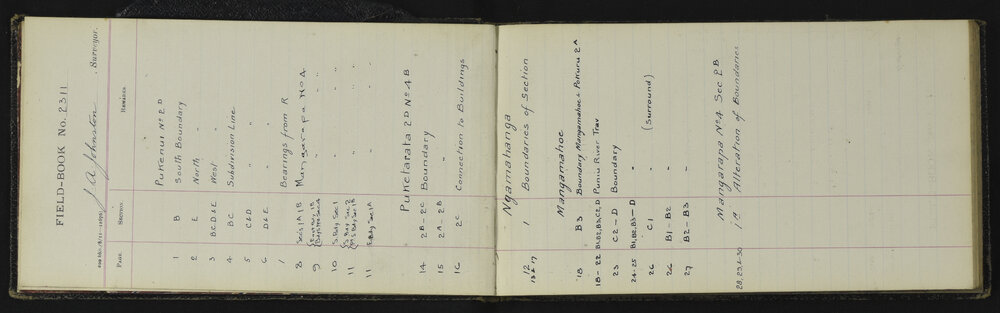 FIELD-BOOK No. 2311
J A Johnston, Surveyor.
Page. Section. Remarks.
Pukenui No 2 D
1 B South Boundary
2 E North "
3 B C, D & E West "
4 B C Subdivision Line
5 C & D " "
6 D & E " "
7 Bearings from R
8 Secs 1A 1B Mangarapa No 4.
9
10 S. Bdy Sec 1 " "
11 " "
11 E Bdy Sec 1A " "
Puketarata 2D No 4B
14 2B – 2C Boundary
15 2A – 2B "
16 2C Connection to Buildings
Ngamahanga
12 1 Boundaries of Section
13 & 17
Mangamahoe
18 B 3 Boundary Mangamahoe & Pokuru 2A
18 – 22 B1, B2, B3, C2, D Puniu River Trav
23 C2 – D Boundary
24-25 B1, B2, B3 – D "
26 C 1 " (Surround)
26 B1 – B2 "
27 B2 – B3 "
Mangarapa No 4 Sec 2B
28, 29, & 30 1 C Alteration of Boundaries